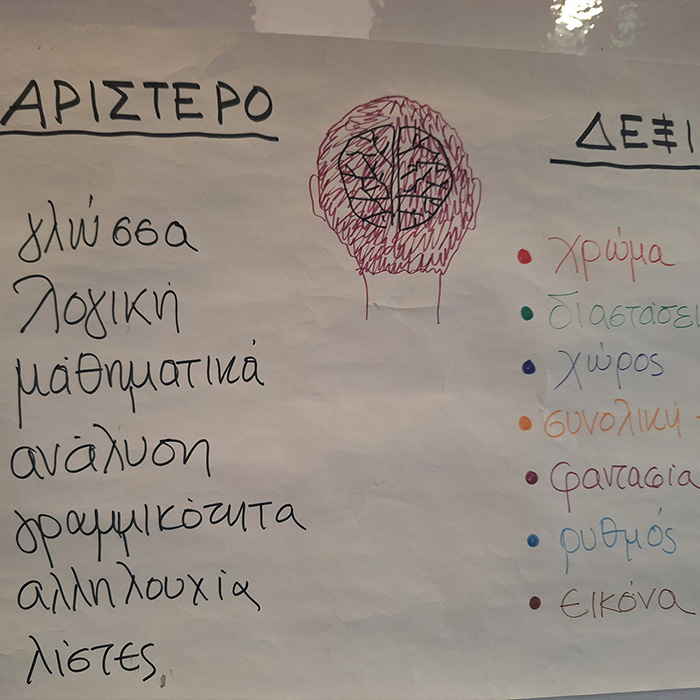 ΑΡΙΣΤΕΡΟ
γλώσσα
λογική
μαθηματικά
ανάλυση
γραμμικότητα
αλληλουχία
λίστες
ΔΕΞΙ
• χρώμα
• διαστάσει
• χώρος
• συνολική
• φαντασία
• ρυθμός
• εικόνα